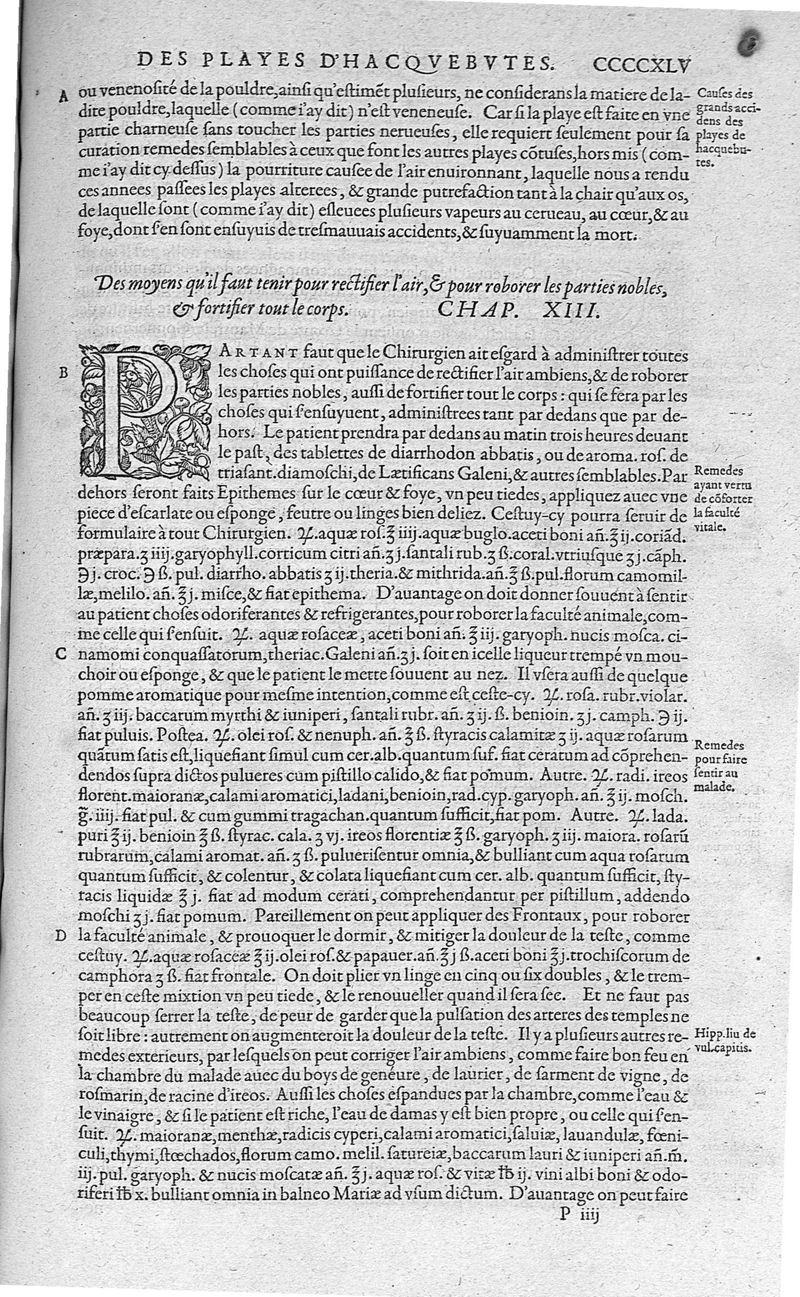 DES PLAYES D'HACQVEBVTES. CCCCXLV
A ou venenosité de la pouldre, ainsi qu'estimēt plusieurs, ne considerans la matiere de la-
dite pouldre, laquelle (comme i'ay dit) n'est veneneuse. Car si la playe est faite en vne
partie charneuse sans toucher les parties nerueuses, elle requiert seulement pour sa
curation remedes semblables à ceux que font les autres playes cōtuses, hors mis (com-
me i'ay dit cy dessus) la pourriture causee de l'air enuironnant, laquelle nous a rendu
ces annees passees les playes alterees, & grande putrefaction tant à la chair qu'aux os,
de laquelle sont (comme i'ay dit) esleuees plusieurs vapeurs au cerueau, au cœur, & au
foye, dont s'en sont ensuyuis de tresmauuais accidents, & suyuamment la mort.
Causes des
grands acci-
dens des
playes de
hacquebu-
tes.
Des moyens qu'il faut tenir pour rectifier l'air, & pour roborer les parties nobles,
& fortifier tout le corps. CHAP. XIII.
PARTANT faut que le Chirurgien ait esgard à administrer toutes
B les choses qui ont puissance de rectifier l'air ambiens, & de roborer
les parties nobles, aussi de fortifier tout le corps : qui se fera par les
choses qui s'ensuyuent, administrees tant par dedans que par de-
hors. Le patient prendra par dedans au matin trois heures deuant
le past, des tablettes de diarrhodon abbatis, ou de aroma. ros. de
triasant. diamoschi, de Lætificans Galeni, & autres semblables. Par
dehors seront faits Epithemes sur le cœur & foye, vn peu tiedes, appliquez auec vne
piece d'escarlate ou esponge, feutre ou linges bien deliez. Cestuy-cy pourra seruir de
formulaire à tout Chirurgien. ♃. aquæ ros. ℥ iiij. aquæ buglo. aceti boni añ. ℥ ij. coriād.
præpara. ʒ iiij. garyophyll. corticum citri añ. ʒ j. santali rub. ʒ ß. coral. vtriusque ʒ j. cāph.
℈ j. croc. ℈ ß. pul. diarrho. abbatis ʒ ij. theria. & mithrida. añ. ℥ ß. pul. florum camomil-
læ, melilo. añ. ℥ j. misce, & fiat epithema. D'auantage on doit donner souuent à sentir
au patient choses odoriferantes & refrigerantes, pour roborer la faculté animale, com-
me celle qui s'ensuit. ♃. aquæ rosaceæ, aceti boni añ. ℥ iij. garyoph. nucis mosca. ci-
C namomi conquassatorum, theriac. Galeni añ. ʒ j. soit en icelle liqueur trempé vn mou-
choir ou esponge, & que le patient le mette souuent au nez. Il vsera aussi de quelque
pomme aromatique pour mesme intention, comme est ceste-cy. ♃. rosa. rubr. violar.
añ. ʒ iij. baccarum myrthi & iuniperi, santali rubr. añ. ʒ ij. ß. benioin. ʒ j. camph. ℈ ij.
fiat puluis. Postea. ♃. olei ros. & nenuph. añ. ℥ ß. styracis calamitæ ʒ ij. aquæ rosarum
quātum satis est, liquefiant simul cum cer. alb. quantum suf. fiat ceratum ad cōprehen-
dendos supra dictos pulueres cum pistillo calido, & fiat pomum. Autre. ♃. radi. ireos
florent. maioranæ, calami aromatici, ladani, benioin, rad. cyp. garyoph. añ. ℥ ij. mosch.
g̃. iiij. fiat pul. & cum gummi tragachan. quantum sufficit, fiat pom. Autre. ♃. lada.
puri ℥ ij. benioin ℥ ß. styrac. cala. ʒ vj. ireos florentiæ ℥ ß. garyoph. ʒ iij. maiora. rosarū
rubrarum, calami aromat. añ. ʒ ß. puluerisentur omnia, & bulliant cum aqua rosarum
quantum sufficit, & colentur, & colata liquefiant cum cer. alb. quantum sufficit, sty-
racis liquidæ ℥ j. fiat ad modum cerati, comprehendantur per pistillum, addendo
moschi ʒ j. fiat pomum. Pareillement on peut appliquer des Frontaux, pour roborer
D la faculté animale, & prouoquer le dormir, & mitiger la douleur de la teste, comme
cestuy. ♃. aquæ rosaceæ ℥ ij. olei ros. & papauer. añ. ℥ j ß. aceti boni ℥ j. trochiscorum de
camphora ʒ ß. fiat frontale. On doit plier vn linge en cinq ou six doubles, & le trem-
per en ceste mixtion vn peu tiede, & le renouueller quand il sera sec. Et ne faut pas
beaucoup serrer la teste, de peur de garder que la pulsation des arteres des temples ne
soit libre : autrement on augmenteroit la douleur de la teste. Il y a plusieurs autres re-
medes exterieurs, par lesquels on peut corriger l'air ambiens, comme faire bon feu en
la chambre du malade auec du boys de geneure, de laurier, de sarment de vigne, de
rosmarin, de racine d'ireos. Aussi les choses espandues par la chambre, comme l'eau &
le vinaigre, & si le patient est riche, l'eau de damas y est bien propre, ou celle qui s'en-
suit. ♃. maioranæ, menthæ, radicis cyperi, calami aromatici, saluiæ, lauandulæ, fœni-
culi, thymi, stœchados, florum camo. melil. satureiæ, baccarum lauri & iuniperi añ. m̃.
iij. pul. garyoph. & nucis moscatæ añ. ℥ j. aquæ ros. & vitæ ℔ ij. vini albi boni & odo-
riferi ℔ x. bulliant omnia in balneo Mariæ ad vsum dictum. D'auantage on peut faire
Remedes
ayant vertu
de cōforter
la faculté
vitale.
Remedes
pour faire
sentir au
malade.
Hipp. liu de
vul. capitis.
P iiij